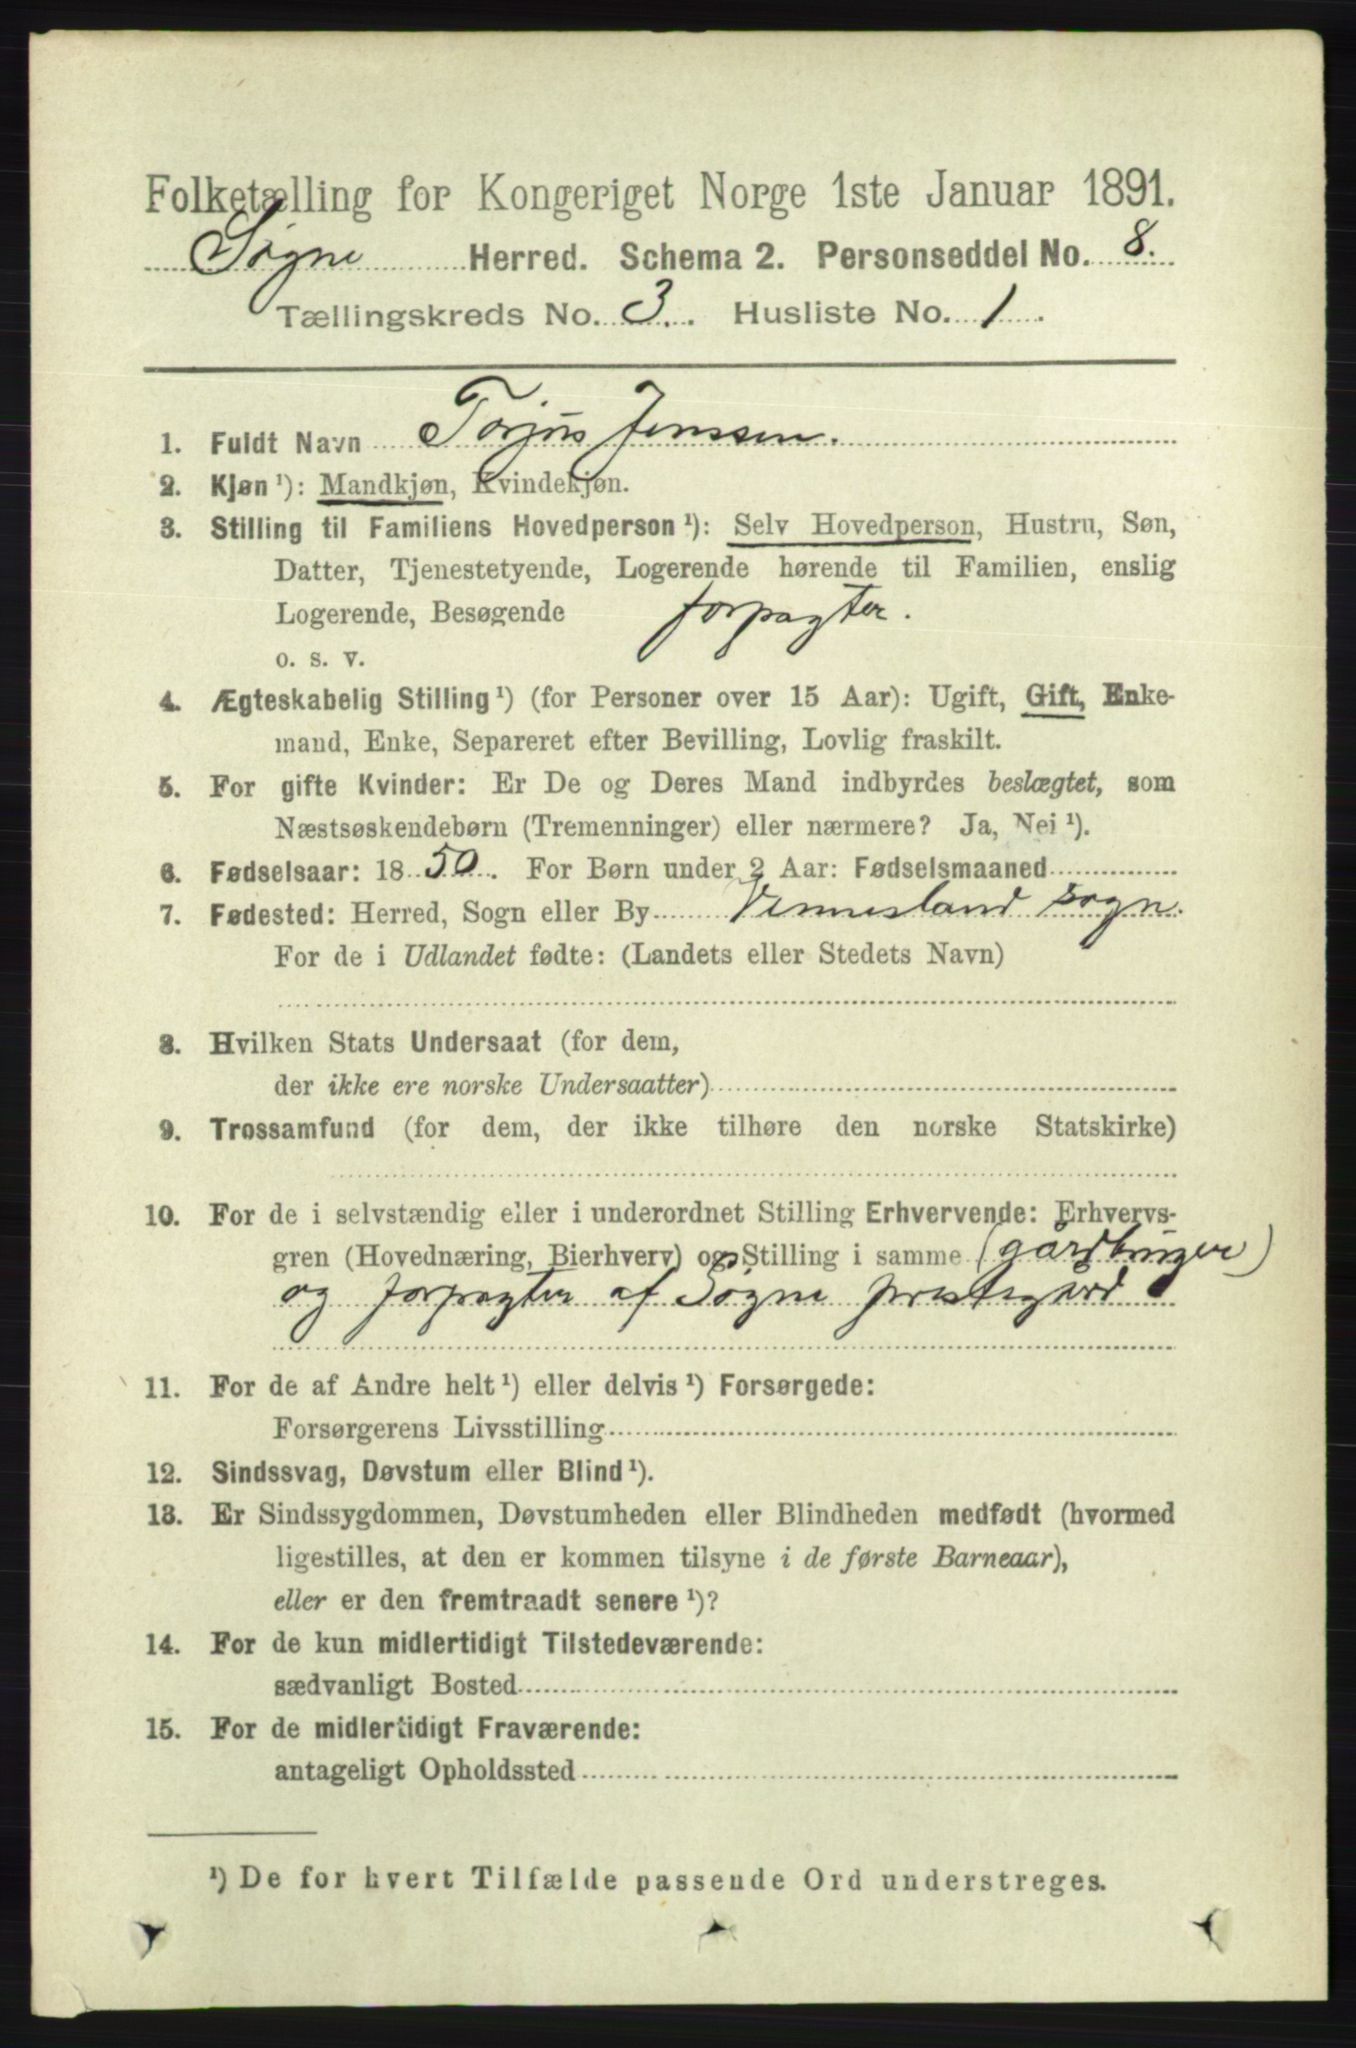 Folketælling for Kongeriget Norge 1ste Januar 1891.
Søgne Herred. Schema 2. Personseddel No. 8.
Tællingskreds No. 3. Husliste No. 1.
1. Fuldt Navn Torjus Jenssen.
2. Kjøn ¹): Mandkjøn, Kvindekjøn.
3. Stilling til Familiens Hovedperson ¹): Selv Hovedperson, Hustru, Søn,
Datter, Tjenestetyende, Logerende hørende til Familien, enslig
Logerende, Besøgende forpagter.
o. s. v.
4. Ægteskabelig Stilling ¹) (for Personer over 15 Aar): Ugift, Gift, Enke-
mand, Enke, Separeret efter Bevilling, Lovlig fraskilt.
5. For gifte Kvinder: Er De og Deres Mand indbyrdes beslægtet, som
Næstsøskendebørn (Tremenninger) eller nærmere? Ja, Nei ¹).
6. Fødselsaar: 1850. For Børn under 2 Aar: Fødselsmaaned
7. Fødested: Herred, Sogn eller By Vennesland sogn.
For de i Udlandet fødte: (Landets eller Stedets Navn)
8. Hvilken Stats Undersaat (for dem,
der ikke ere norske Undersaatter)
9. Trossamfund (for dem, der ikke tilhøre den norske Statskirke)
10. For de i selvstændig eller i underordnet Stilling Erhvervende: Erhvervs-
gren (Hovednæring, Bierhverv) og Stilling i samme (gårdbruger)
og forpagter af Søgne prestegård
11. For de af Andre helt ¹) eller delvis ¹) Forsørgede:
Forsørgerens Livsstilling
12. Sindssvag, Døvstum eller Blind ¹).
13. Er Sindssygdommen, Døvstumheden eller Blindheden medfødt (hvormed
ligestilles, at den er kommen tilsyne i de første Barneaar),
eller er den fremtraadt senere ¹)?
14. For de kun midlertidigt Tilstedeværende:
sædvanligt Bosted
15. For de midlertidigt Fraværende:
antageligt Opholdssted
¹) De for hvert Tilfælde passende Ord understreges.